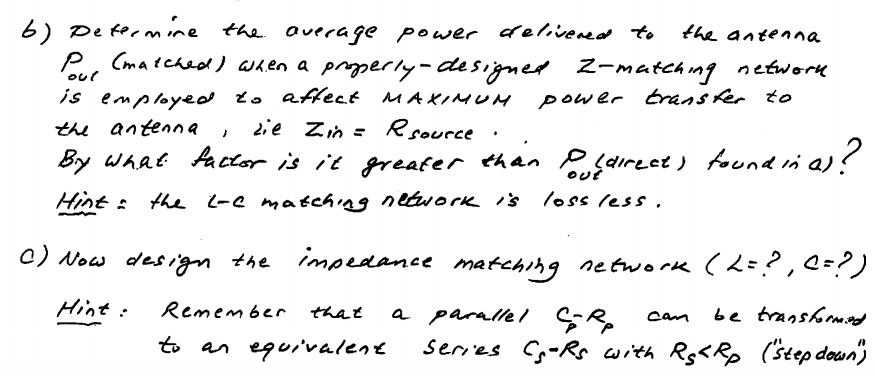 b) Determine the average power delivered to the antenna
Pout (matched) when a properly-designed Z-matching network
is employed to affect MAXIMUM power transfer to
the antenna, ie Zin = Rsource.
By what factor is it greater than Pout(direct) found in a)?
Hint: the L-C matching network is lossless.
c) Now design the impedance matching network (L=?, C=?)
Hint: Remember that a parallel Cp-Rp can be transformed
to an equivalent series Cs-Rs with Rs<Rp ("step down")